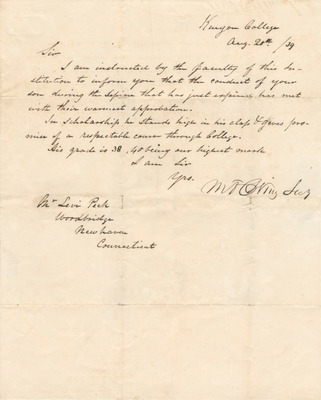 Kenyon College
Aug. 28th /39
Sir
I am instructed by the faculty of this In-
stitution to inform you that the conduct of your
son during the session that has just expired has met
with their warmest approbation.
In scholarship he stands high in his class & gives pro-
mise of a respectable course through College.
His grade is 38, 40 being our highest mark
I am Sir
Yrs.
M T C Wing Secy
Mr Levi Peck
Woodbridge
Newhaven
Connecticut